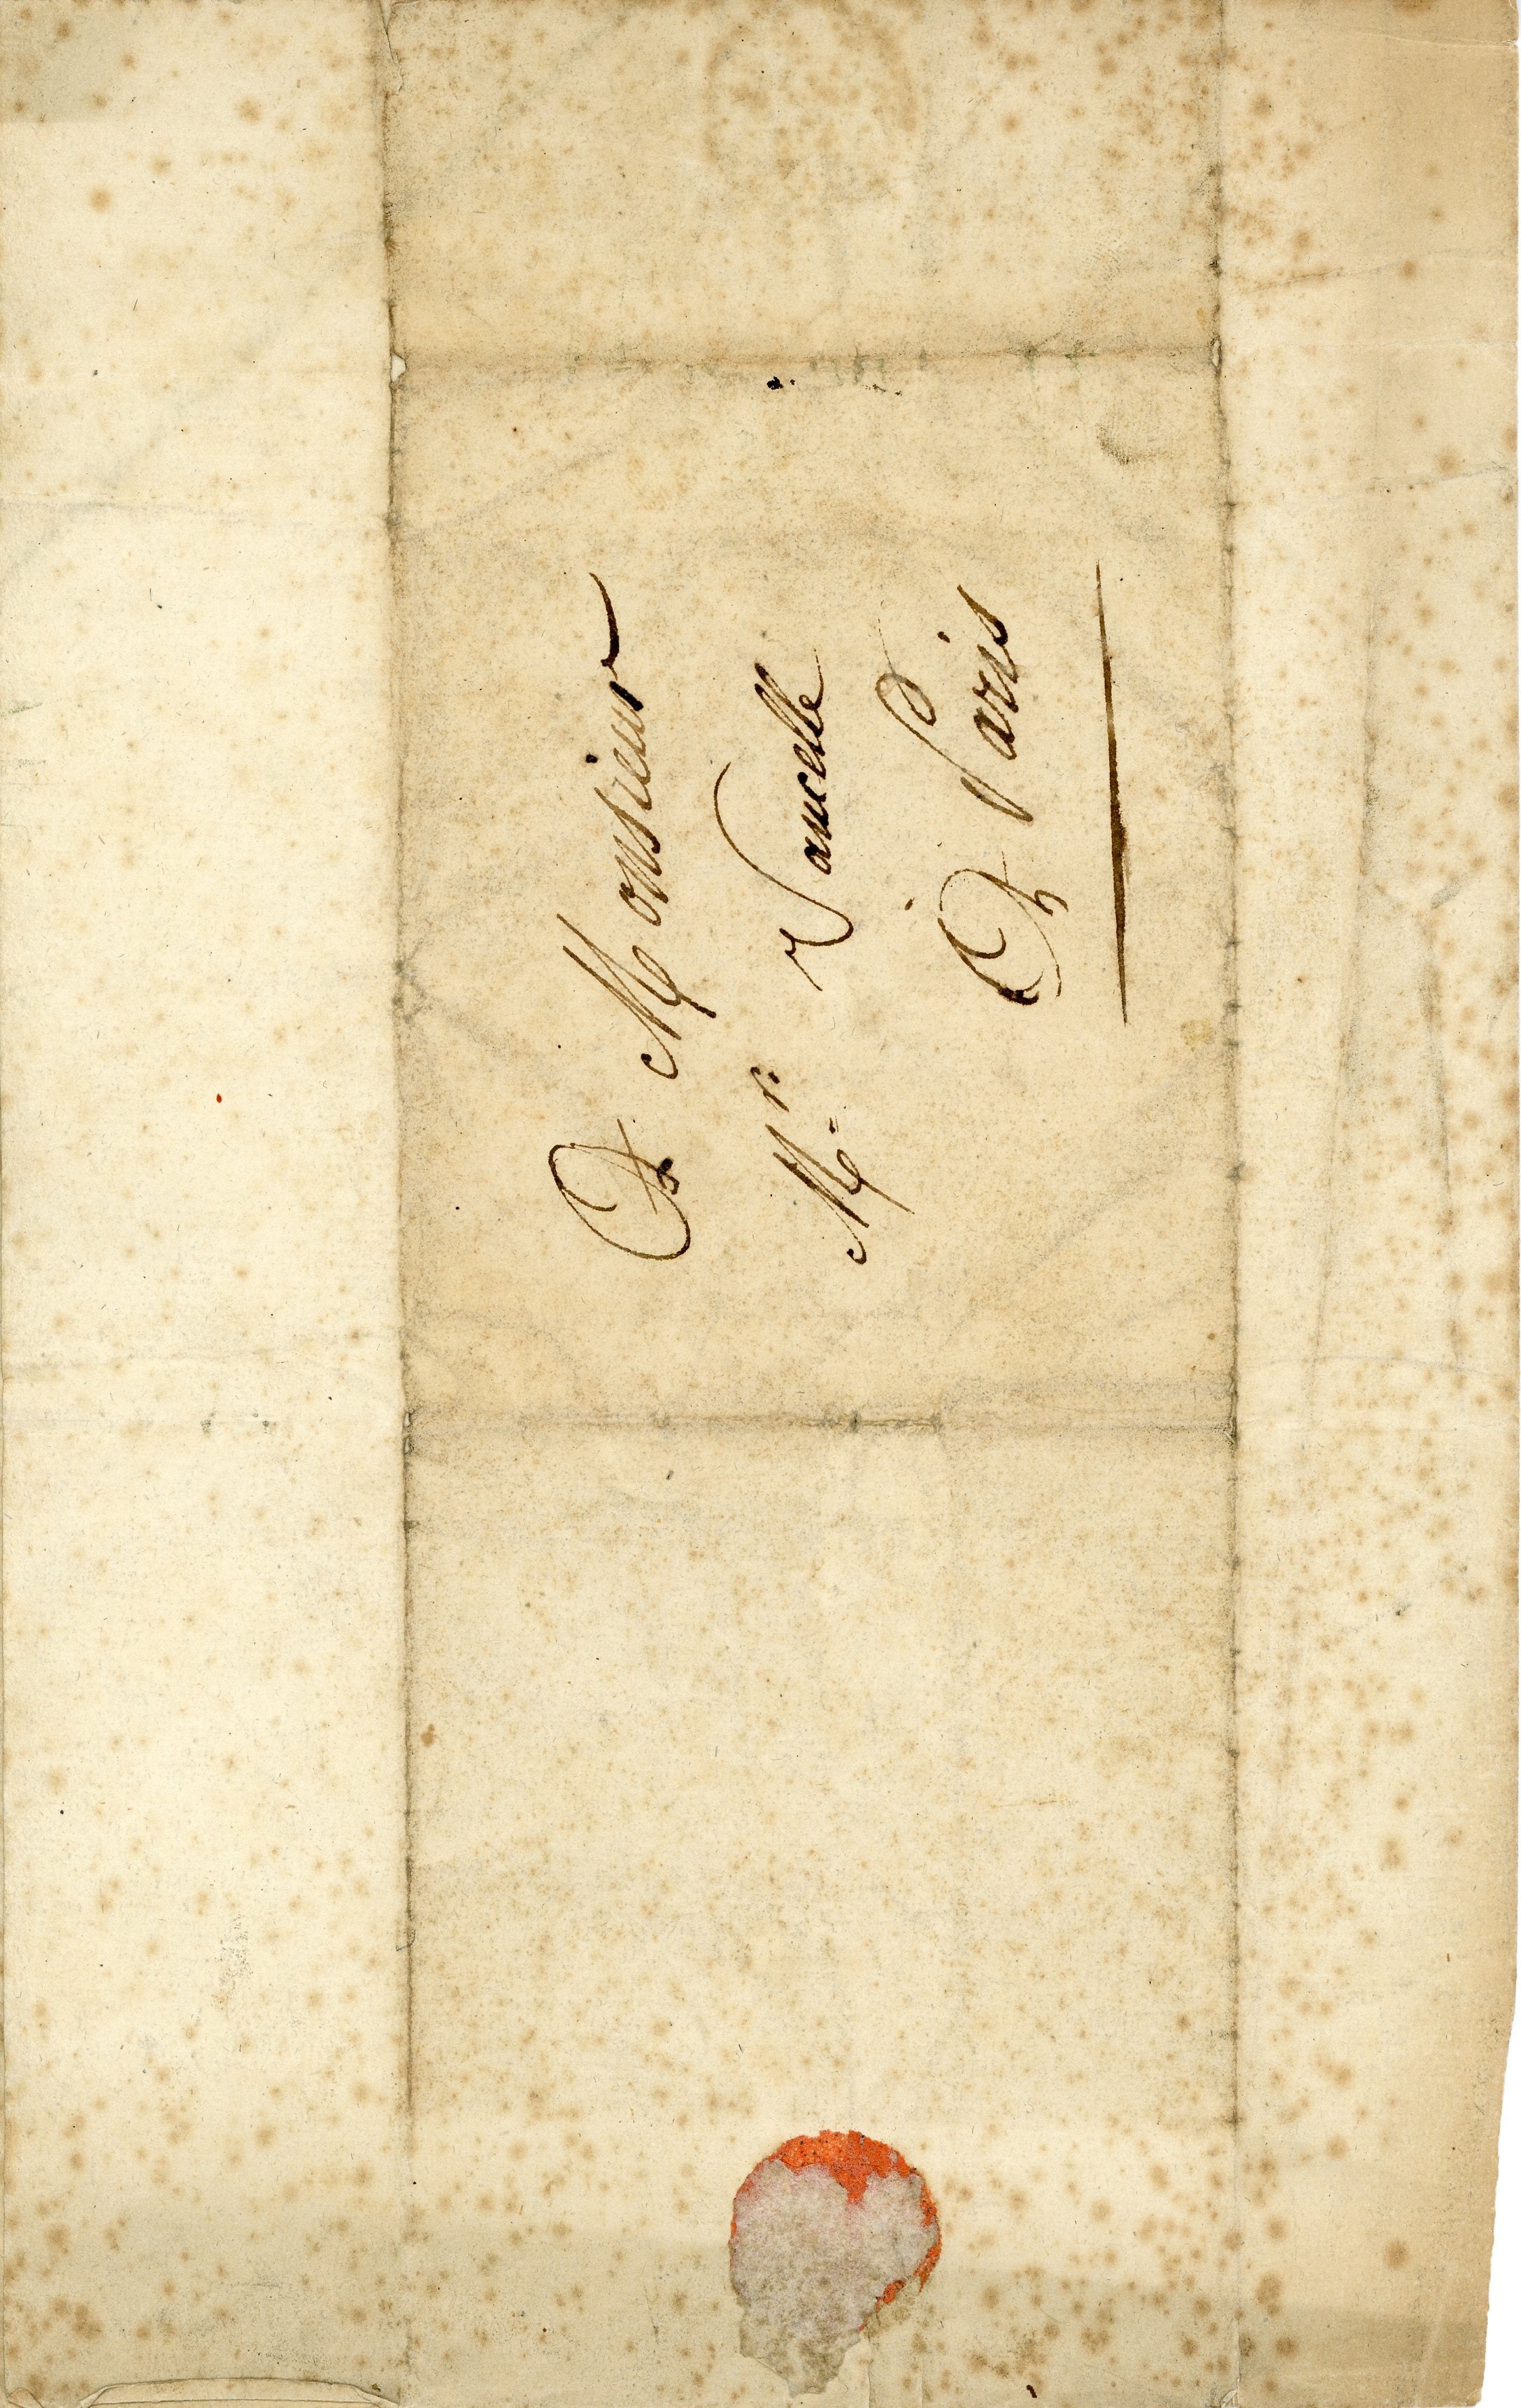 A Monsieur
Mr. Vaucelle
A Paris